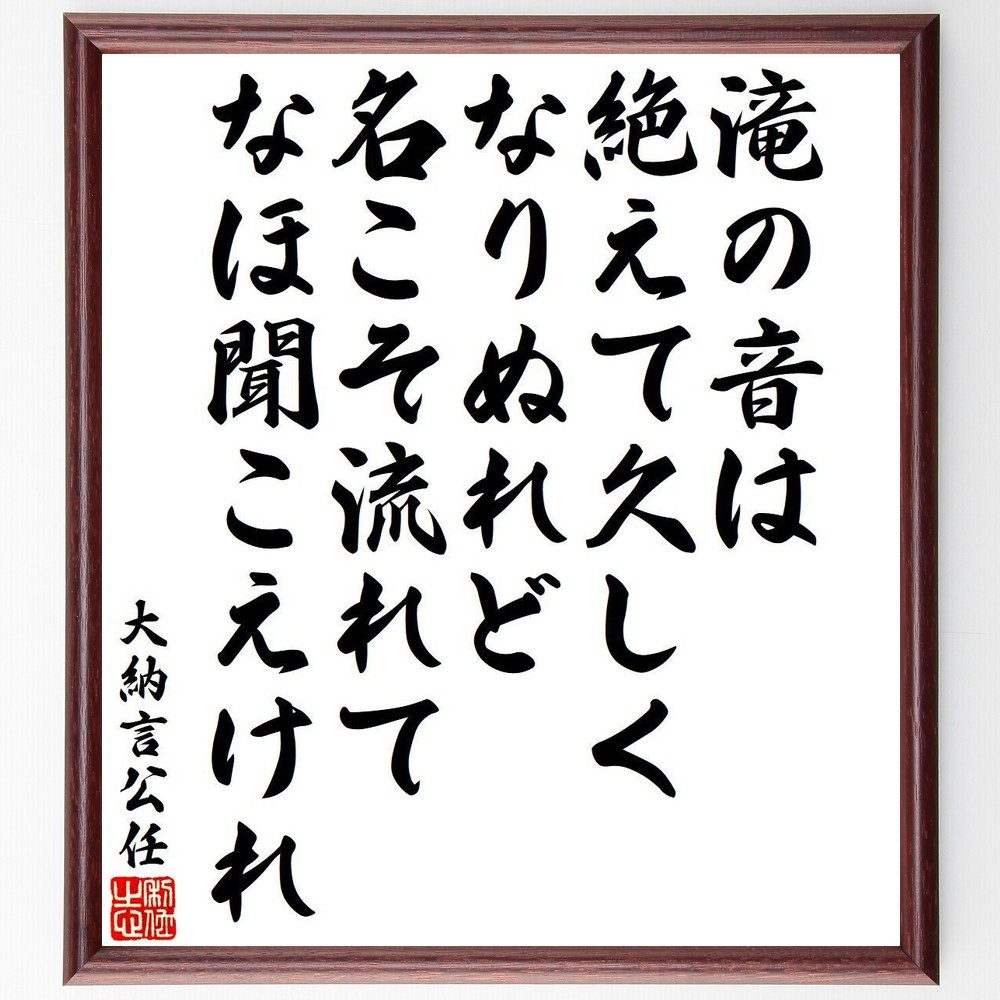 滝の音は
絶えて久しく
なりぬれど
名こそ流れて
なほ聞こえけれ
大納言公任